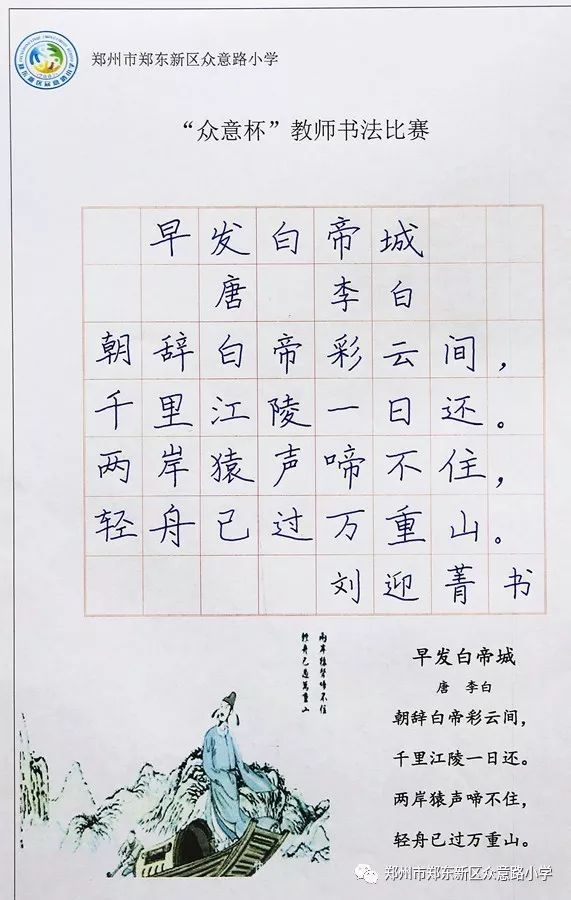 郑州市郑东新区众意路小学
“众意杯”教师书法比赛
早发白帝城
唐 李白
朝辞白帝彩云间，
千里江陵一日还。
两岸猿声啼不住，
轻舟已过万重山。
刘迎菁书
两岸猿声啼不住
轻舟已过万重山
早发白帝城
唐 李白
朝辞白帝彩云间，
千里江陵一日还。
两岸猿声啼不住，
轻舟已过万重山。
郑州市郑东新区众意路小学